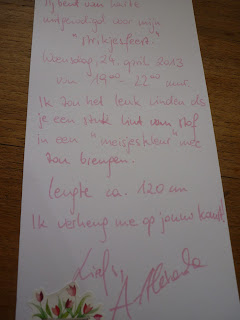 Jij bent van harte
uitgenodigd voor mijn
"strikjesfeest!"
Woensdag, 24 april 2013
van 19⁰⁰ - 22⁰⁰ uur
Ik zou het leuk vinden als
je een stuk lint van stof
in een "meisjeskleur" mee
zou brengen.
lengte ca. 120 cm
Ik verheug me op jouw komst!
Liefs,